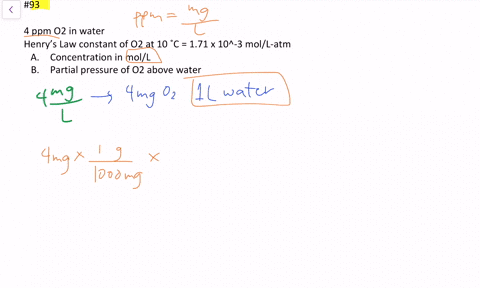 #93
ppm = mg/L
4 ppm O2 in water
Henry's Law constant of O2 at 10 ˚C = 1.71 x 10^-3 mol/L-atm
A. Concentration in mol/L
B. Partial pressure of O2 above water
4 mg/L → 4 mg O₂ 1 L water
4 mg × 1 g/1000 mg ×